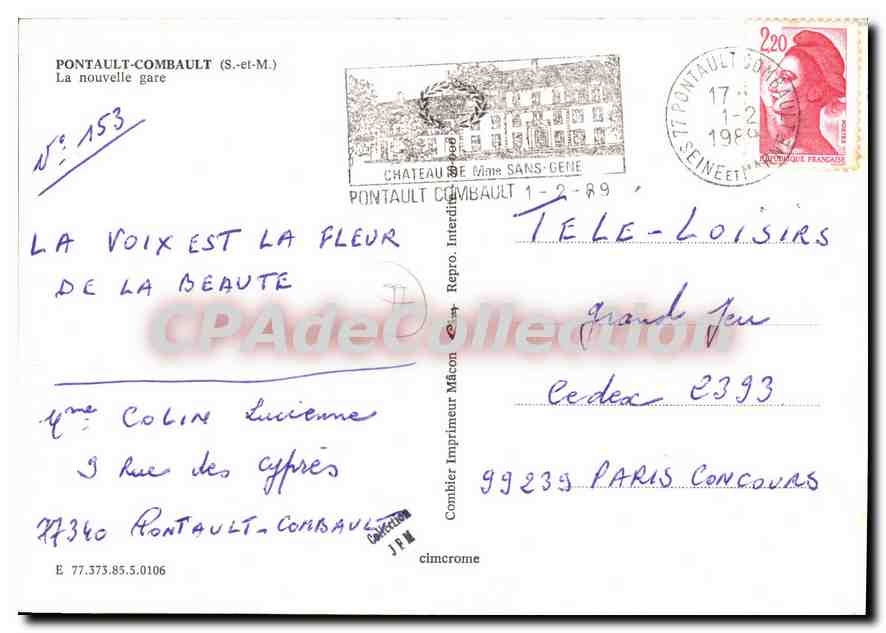 PONTAULT-COMBAULT (S.-et-M.)
La nouvelle gare
N° 153
CHATEAU DE Mme SANS-GENE
PONTAULT COMBAULT 1-2-89
77 PONTAULT COMBAULT
17
1-2
1989
SEINE ET M
2,20
POSTES
REPUBLIQUE FRANÇAISE
LA VOIX EST LA FLEUR
DE LA BEAUTE
Mme COLIN Lucienne
9 Rue des cyprès
77340 PONTAULT-COMBAULT
Collection
JPM
E 77.373.85.5.0106
Combier Imprimeur Mâcon Repro. Interdite
cimcrome
TELE-LOISIRS
grand Jeu
Cedex 2393
99239 PARIS CONCOURS
CPAdeCollection